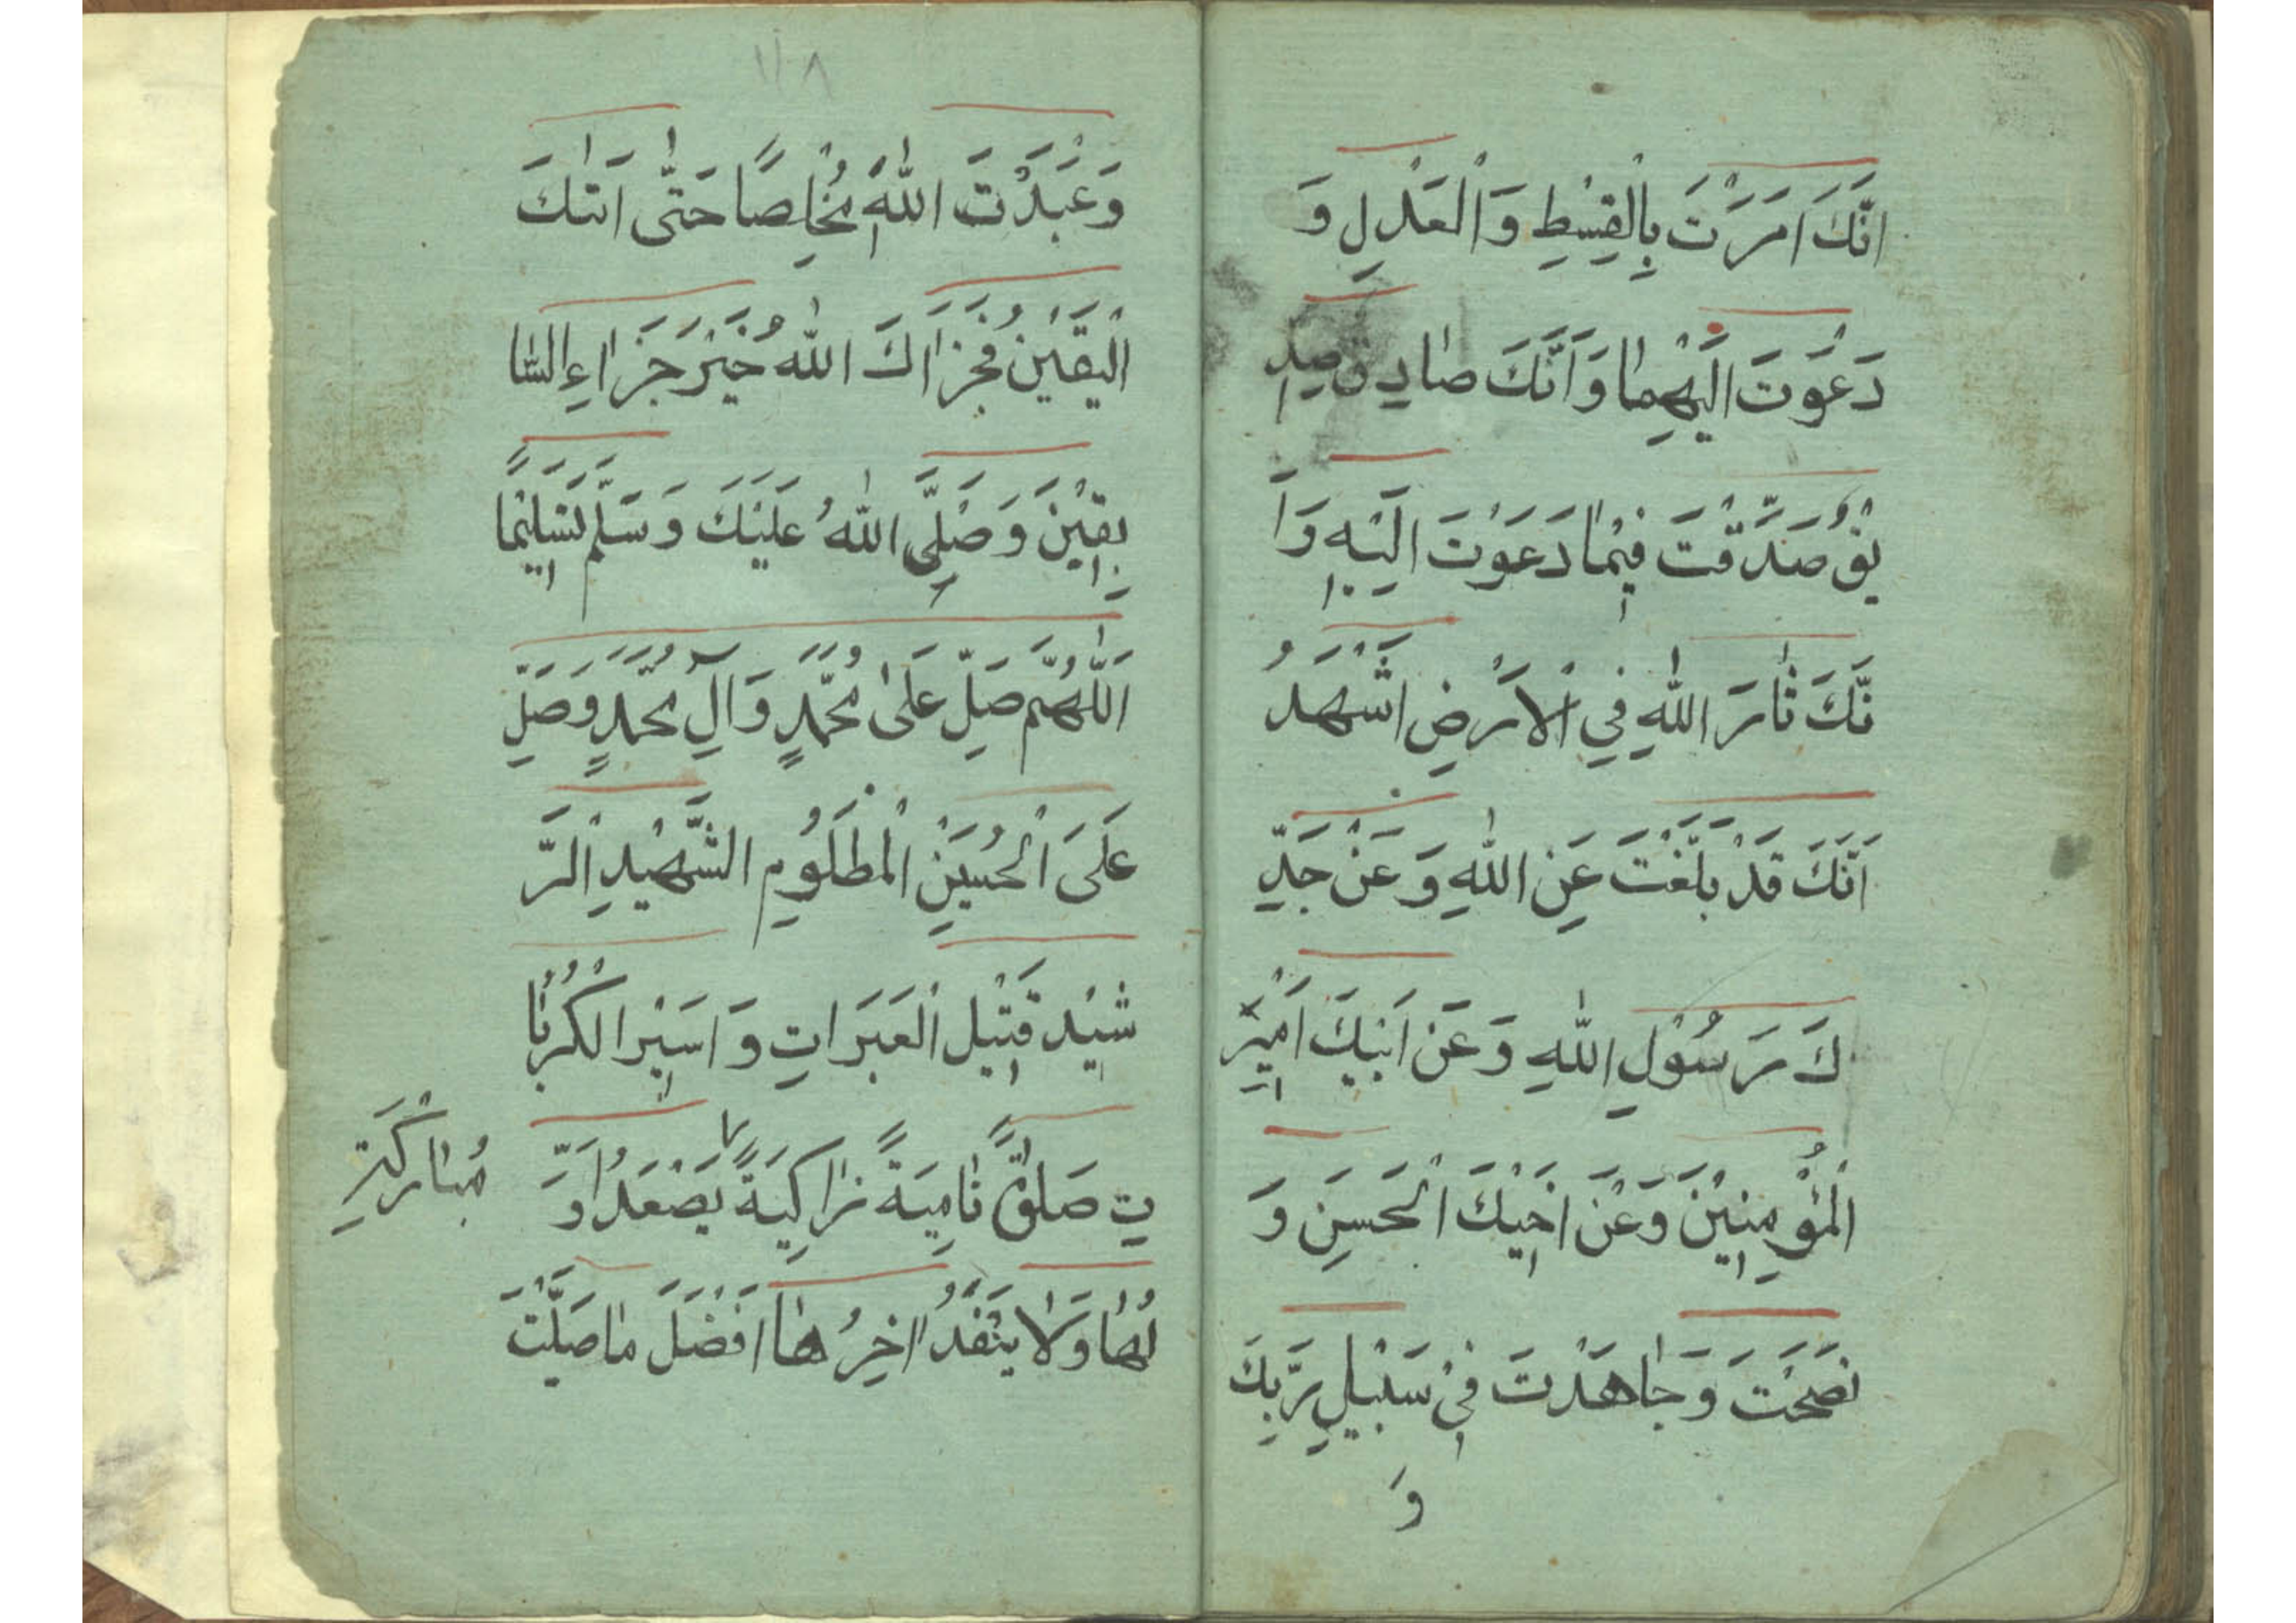 اَنَّكَ اَمَرْتَ بِالْقِسْطِ وَالْعَدْلِ وَ
دَعَوْتَ اِلَيْهِمٰا وَاَنَّكَ صٰادِقٌ صِدِّ
يْقٌ صَدَّقْتَ فِيْمٰا دَعَوْتَ اِلَيْهِ وَاَ
نَّكَ ثٰارَ اللّٰهِ فِي الْاَرْضِ اَشْهَدُ
اَنَّكَ قَدْ بَلَّغْتَ عَنِ اللّٰهِ وَعَنْ جَدِّ
كَ رَسُوْلِ اللّٰهِ وَعَنْ اَبِيْكَ اَمِيْرِ
الْمُؤْمِنِيْنَ وَعَنْ اَخِيْكَ الْحَسَنِ وَ
نَصَحْتَ وَجٰاهَدْتَ فِيْ سَبِيْلِ رَبِّكَ
وَ
١١٨
وَعَبَدْتَ اللّٰهَ مُخْلِصًا حَتّٰى اَتٰكَ
الْيَقِيْنُ فَجَزٰاكَ اللّٰهُ خَيْرَ جَزٰاءِ السّٰا
بِقِيْنَ وَصَلَّى اللّٰهُ عَلَيْكَ وَسَلَّمَ تَسْلِيْمًا
اَللّٰهُمَّ صَلِّ عَلٰى مُحَمَّدٍ وَآلِ مُحَمَّدٍ وَصَلِّ
عَلَى الْحُسَيْنِ الْمَظْلُوْمِ الشَّهِيْدِ الرَّ
شِيْدِ قَتِيْلِ الْعَبَرَاتِ وَاَسِيْرِ الْكُرُبٰا
تِ صَلٰوةً نٰامِيَةً زٰاكِيَةً يَصْعَدُ اَوَّ
مُبٰارَكَةً
لُهٰا وَلٰا يَنْفَدُ اٰخِرُهٰا اَفْضَلَ مٰا صَلَّيْتَ